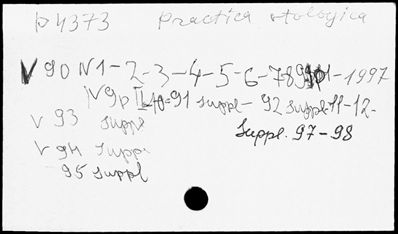 P4373 Practica otologica
V 90 N1-2-3-4-5-6-7-8 -1997
V90 -91 suppl- 92 suppl-11-12-
V 93 suppl
Suppl. 97-98
V 94 suppl
95 suppl